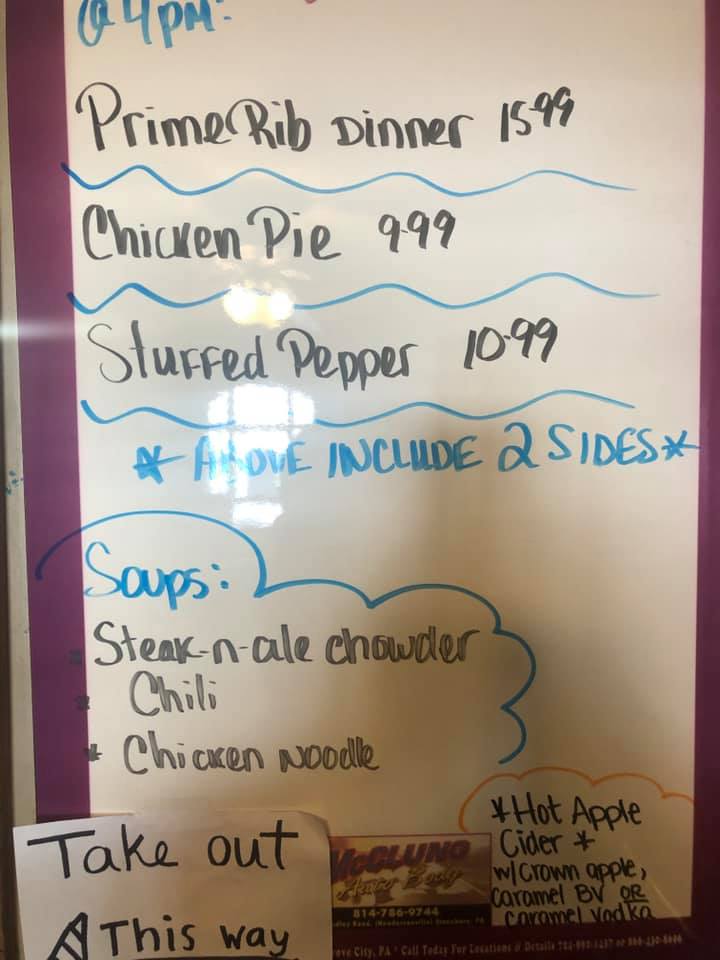 @ 4pm:
Prime Rib Dinner 15.99
Chicken Pie 9.99
Stuffed Pepper 10.99
* ABOVE INCLUDE 2 SIDES *
Soups:
* Steak-n-ale chowder
* Chili
* Chicken Noodle
*Hot Apple
Cider *
w/crown apple,
caramel BV OR
caramel Vodka
Take out
This way
McCLUNG
Auto Body
814-786-9744
ove City, PA * Call Today For Locations & Details